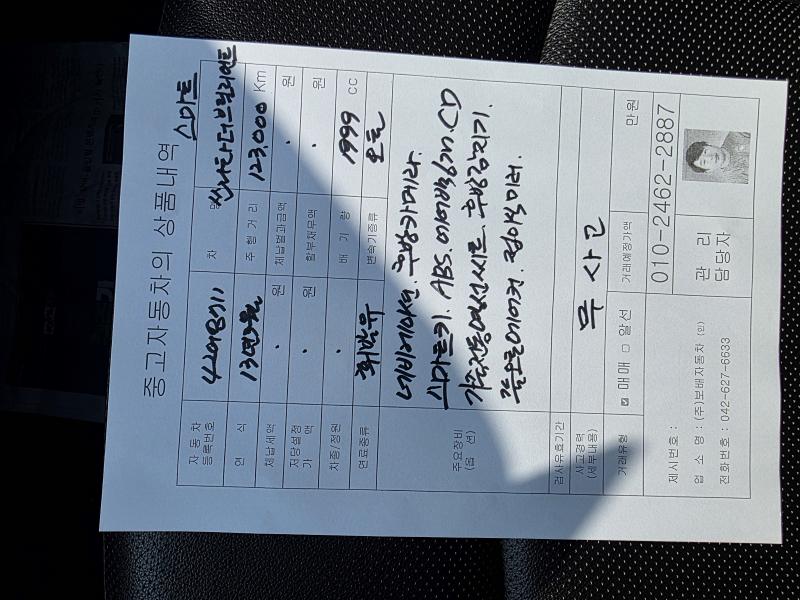 중고자동차의 상품내역
스마트
자동차 등록번호
차 명 쏘나타더브릴리언트
연 식 13년 주행거리 123,000 Km
체납세액 . 원 체납범과금액 . 원
저당설정 가액 . 원 할부채무액 . 원
차종/정원 . 배기량 1999 cc
연료종류 휘발유 변속기종류 오토
주요장비 (옵 션) 네비게이션. 후방카메라.
스마트키. ABS. 에어백6개. CD
가죽전동열선시트. 후방감지기.
풀오토에어컨. 접이식미러.
검사유효기간
사고경력 (세부내용) 무사고
거래유형 ☑ 매매 □ 알선 거래예정가액 만원
제시번호 :
업 소 명 : (주)보배자동차 (인)
전화번호 : 042-627-6633
관 리 담당자 010-2462-2887